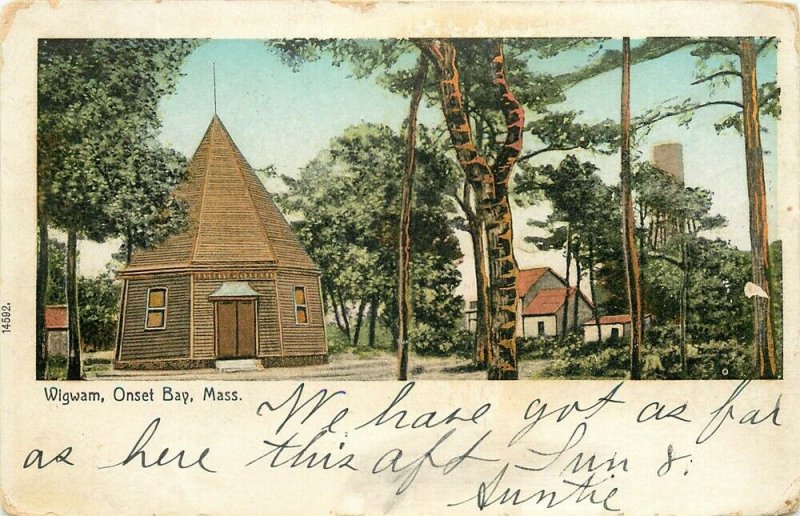 14592.
Wigwam, Onset Bay, Mass.
We have got as far
as here this aft
Auntie